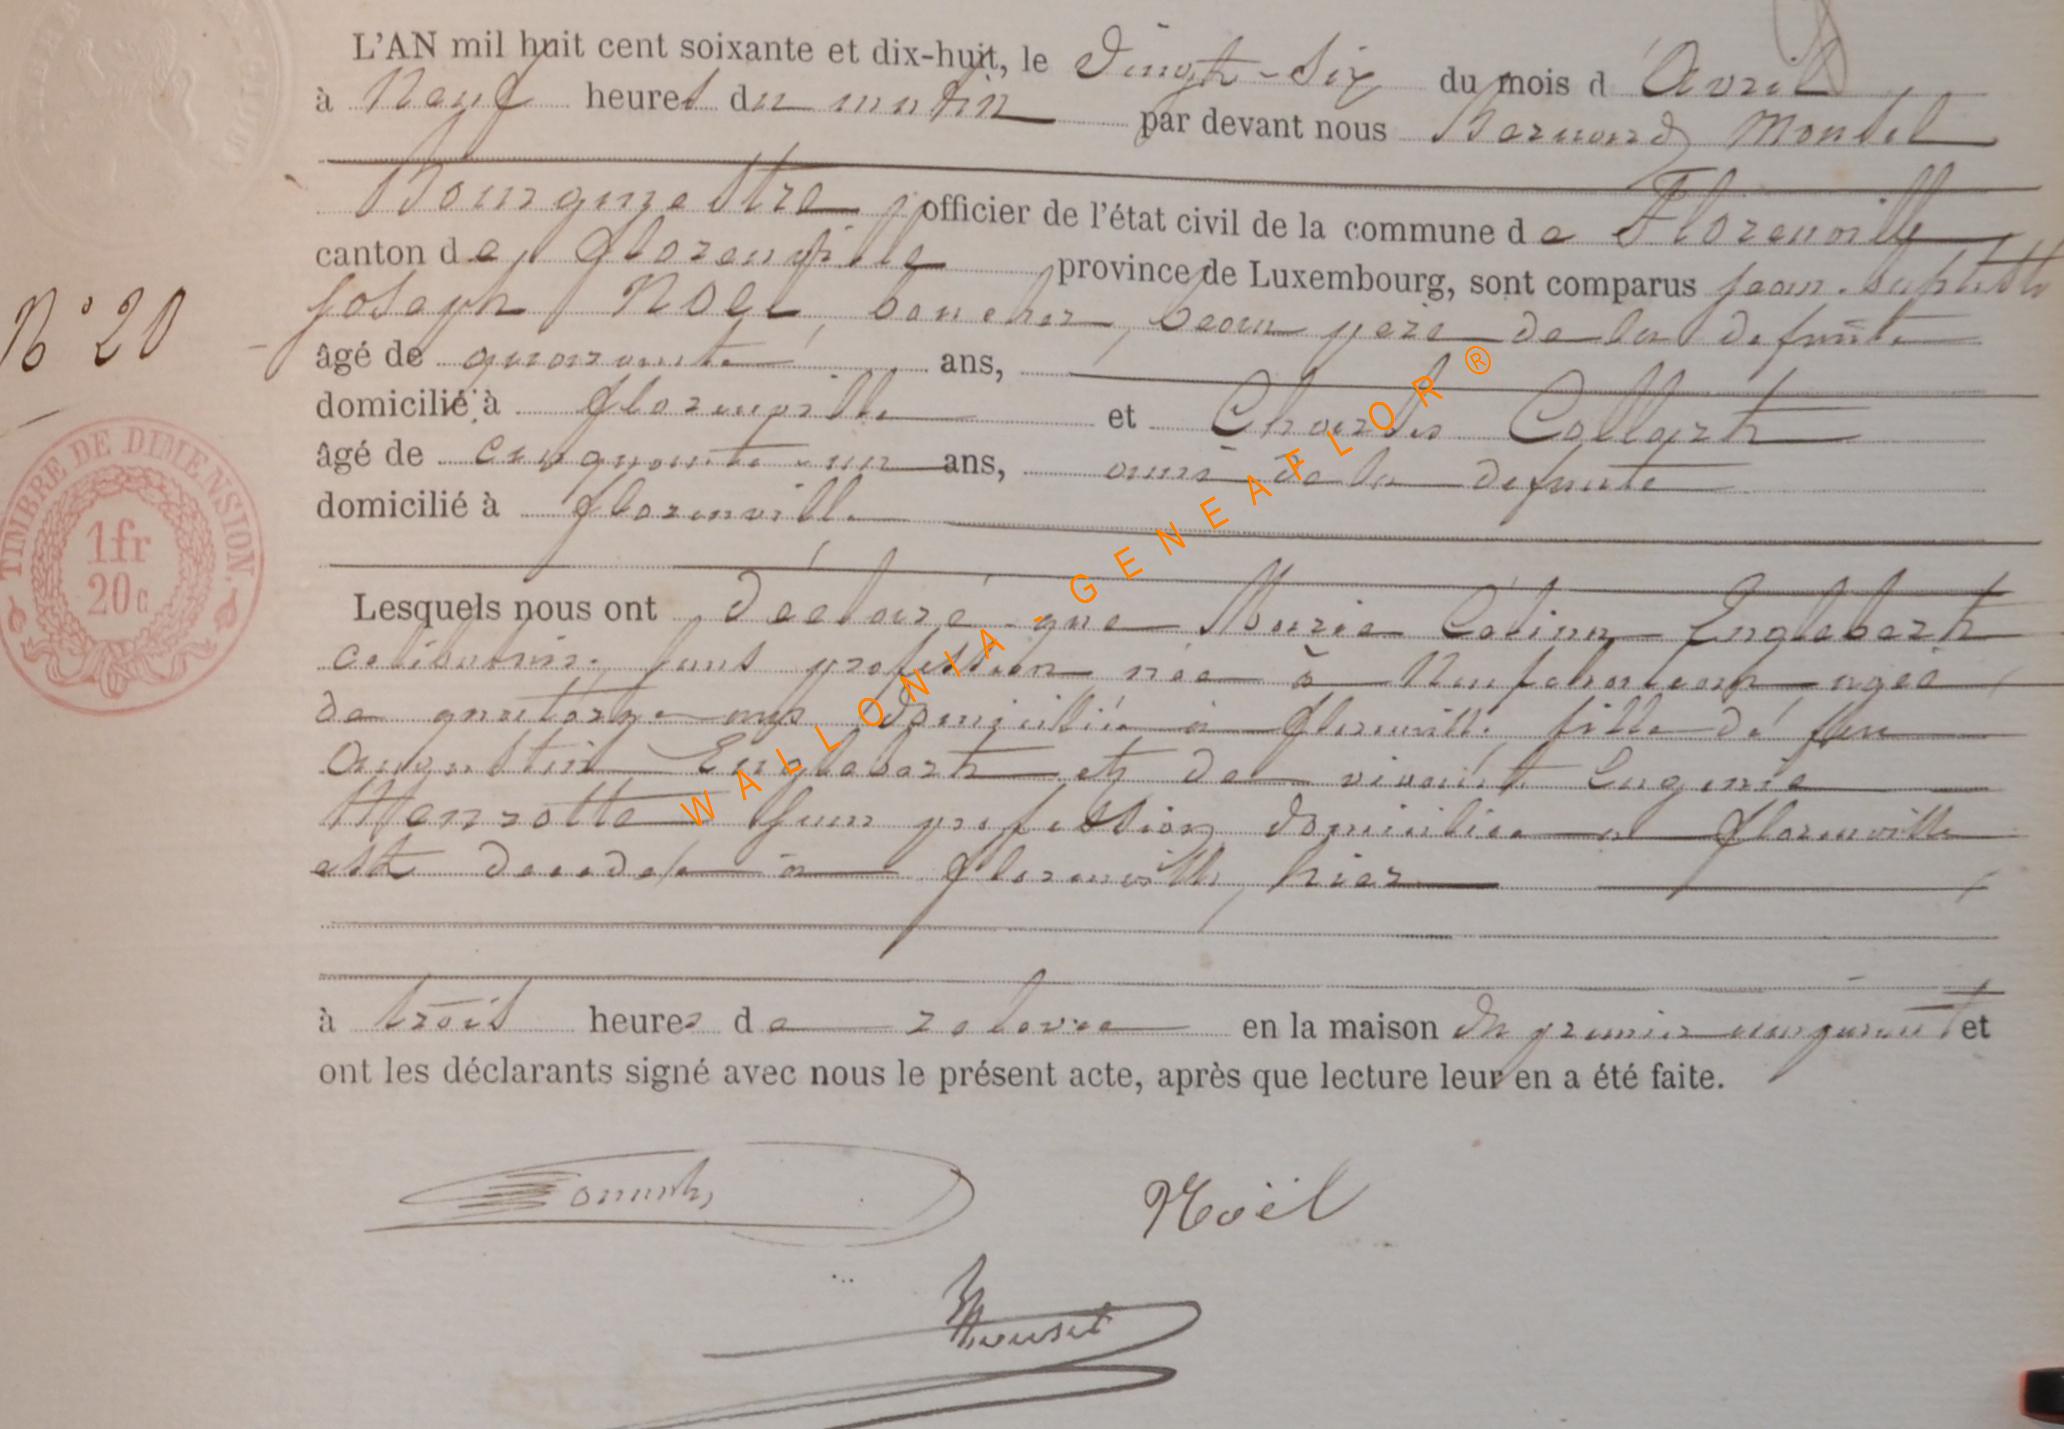 L'AN mil huit cent soixante et dix-huit, le Vingt-Six du mois d'Avril
à Neuf heures du matin par devant nous Bernard Mousel
Bourgmestre officier de l'état civil de la commune de Florenville
canton de Florenville province de Luxembourg, sont comparus Jean-baptiste
N° 20
Joseph Noel, boucher, beau pere de la defunte
âgé de quarante ans,
domicilié à florenville et Charles Collart
âgé de cinquante-un ans, ami de la defunte
domicilié à florenville
TIMBRE DE DIMENSION.
1fr
20c
Lesquels nous ont déclaré que Marie Célina Englebert
celibataire, sans profession née à Neufchateau agée
de quatorze ans domiciliée à florenville fille de feu
Augustin Englebert et de vivante Eugenie
Henrotte sans profession domiciliée a florenville
est decedée à florenville, hier
à trois heures de relevee en la maison du premier comparant et
ont les déclarants signé avec nous le présent acte, après que lecture leur en a été faite.
Noël
Mousel
WALLONIA - GENEAFLOR ®